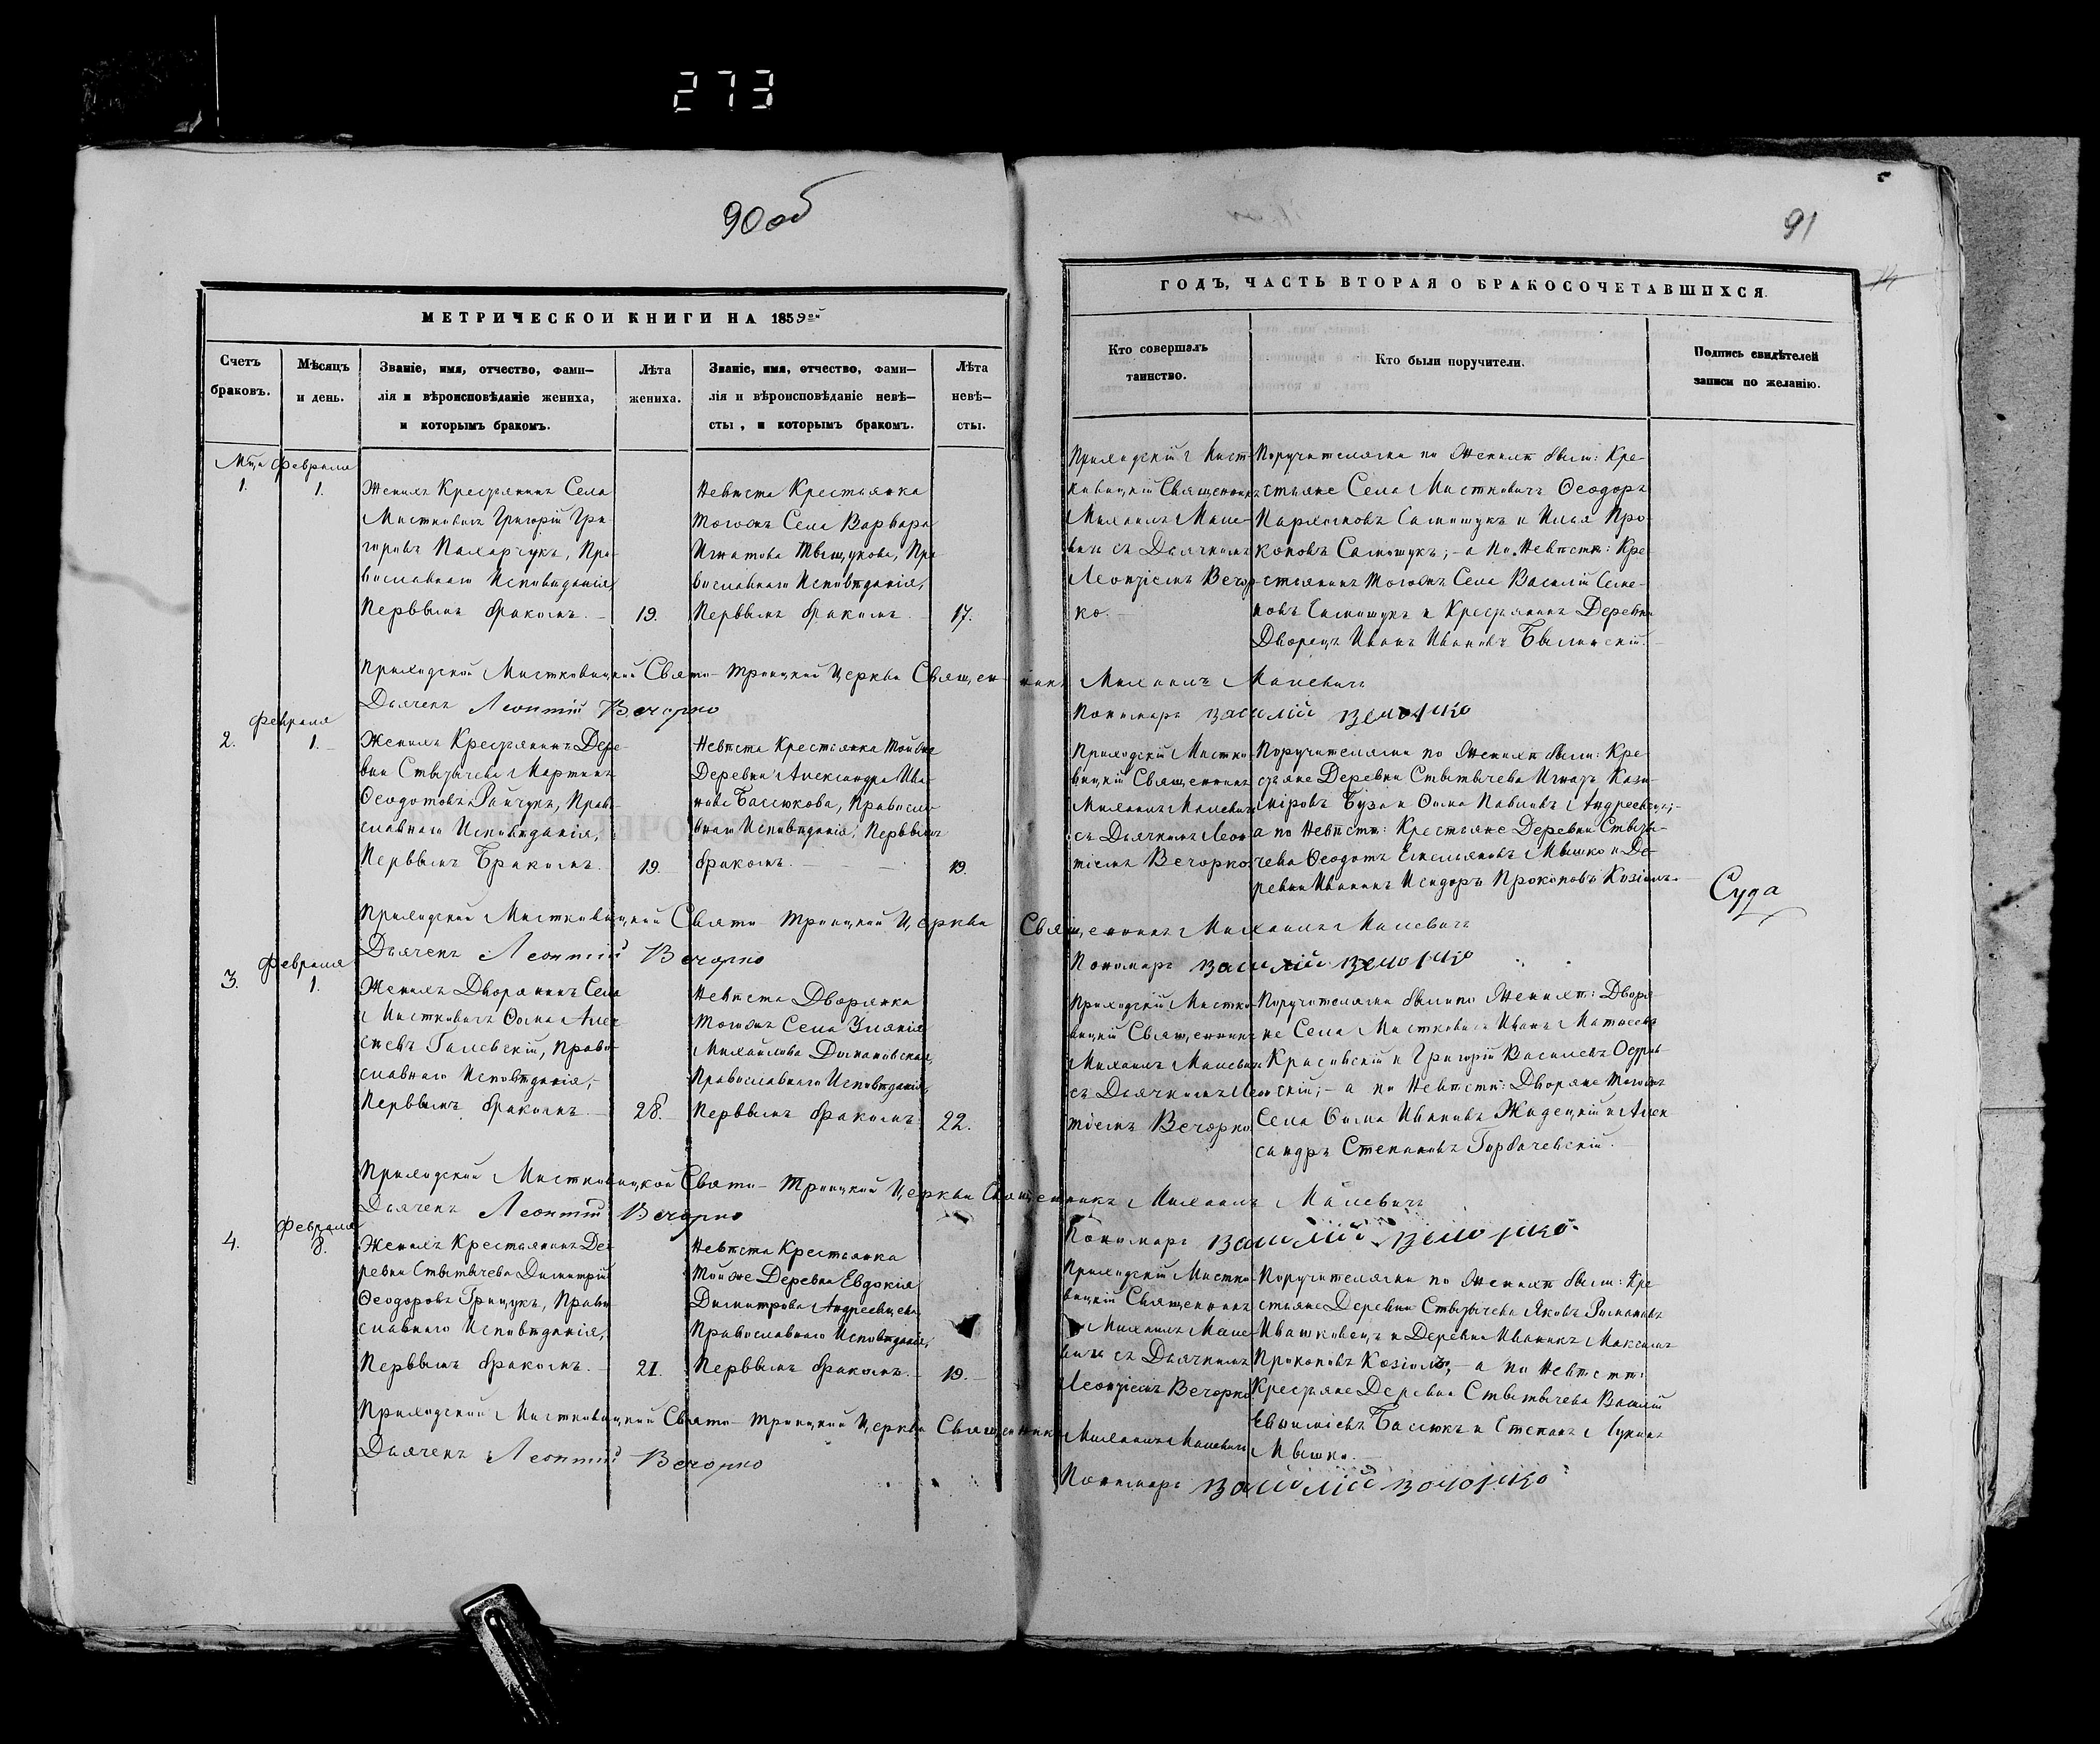 273
90 об
91
МЕТРИЧЕСКОЙ КНИГИ НА 1859ой
Счетъ браковъ.
Мѣсяцъ и день.
Званіе, имя, отчество, фами–
лія и вѣроисповѣданіе жениха,
и которымъ бракомъ.
Лѣта
жениха.
Званіе, имя, отчество, фами–
лія и вѣроисповѣданіе невѣ–
сты, и которымъ бракомъ.
Лѣта
невѣ–
сты.
ГОДЪ, ЧАСТЬ ВТОРАЯ О БРАКОСОЧЕТАВШИХСЯ.
Кто совершалъ
таинство.
Кто были поручители.
Подпись свидѣтелей
записи по желанію.
Мца Февраля
1.
1.
Женихъ Крестьянинъ Села
Мистковичъ Григорій Гри
горовъ Паларчукъ, Пра-
вославнаго Исповѣданія,
Первымъ бракомъ. –
19.
Невѣста Крестьянка
тогожъ Села Варвара
Игнатова Пра-
вославнаго Исповѣданія,
Первымъ бракомъ. –
17.
Приходскій Мист-
ковицкій Священникъ
Михаилъ Мале-
вичъ съ Дьячкомъ
Леонтіемъ Вечор-
ко. –
Поручителями по Женихѣ были: Кре-
стьяне Села Мистковичъ Ѳеодоръ
Самошукъ и Илья Про-
коповъ Самошукъ; – а по Невѣстѣ: Кре-
стьянинъ тогожъ Села Василій Семе-
новъ Самошукъ и Крестьянинъ Деревни
Дворецъ Иванъ Ивановъ Былинскій.
Приходской Мистковицкой Свято-Троицкой Церкви Священникъ Михаилъ Малевичъ
Дьячекъ Леонтій Вечорко
Пономарь Василій Вечорко
Февраля
2.
1. –
Женихъ Крестьянинъ Дере-
вни Стытычева Мартинъ
Ѳеодотовъ Райчукъ, Право-
славнаго Исповѣданія,
Первымъ Бракомъ.
19. –
Невѣста Крестьянка тойже
Деревни Александра Ива-
нова Басюкова, Правосла-
внаго Исповѣданія, Первымъ
бракомъ. –
19.
Приходскій Мистко-
вицкій Священникъ
Михаилъ Малевичъ
съ Дьячкомъ Леон-
тіемъ Вечорко.
Поручителями по Женихѣ были: Кре-
стьяне Деревни Стытычева Игнатъ Кази-
міровъ Буза и Ѳома Павловъ Андреевецъ; –
а по Невѣстѣ: Крестьяне Деревни Стыты-
чева Ѳеодотъ Емельяновъ Мышко и Де-
ревни Иваникъ Исидоръ Прокоповъ Козіолъ. –
Суда
Приходской Мистковицкой Свято-Троицкой Церкви Священникъ Михаилъ Малевичъ
Дьячекъ Леонтій Вечорко
Пономарь Василій Вечорко
Февраля
3.
1.
Женихъ Дворянинъ Села
Мистковичъ Ѳома Алек-
сѣевъ Галевскій, Право-
славнаго Исповѣданія, –
Первымъ бракомъ.
28. –
Невѣста Дворянка
тогожъ Села Уліянія
Михайлова Домановская,
Православнаго Исповѣданія,
Первымъ бракомъ.
22.
Приходскій Мистко-
вицкій Священникъ
Михаилъ Малевичъ
съ Дьячкомъ Леон-
тіемъ Вечорко.
Поручителями были по Женихѣ: Дворя-
не Села Мистковичъ Иванъ Матвеевъ
Красовскій и Григорій Васильевъ Остров-
скій; – а по Невѣстѣ: Дворяне тогожъ
Села Ѳома Ивановъ Жидецкій и Алек
сандръ Степановъ Горбачевскій. –
Приходской Мистковицкой Свято-Троицкой Церкви Священникъ Михаилъ Малевичъ
Дьячекъ Леонтій Вечорко
Пономарь Василій Вечорко
Февраля
4.
8.
Женихъ Крестьянинъ Де-
ревни Стытычева Димитрій
Ѳеодоровъ Грицукъ, Право-
славнаго Исповѣданія,
Первымъ бракомъ. –
21.
Невѣста Крестьянка
тойже Деревни Евдокія
Димитрова Андреевцева
Православнаго Исповѣданія,
Первымъ бракомъ. –
19. –
Приходскій Мистко-
вицкій Священникъ
Михаилъ Мале-
вичъ съ Дьячкомъ
Леонтіемъ Вечорко
Поручителями по Женихѣ были: Кре-
стьяне Деревни Стытычева Яковъ Романовъ
Ивашковецъ и Деревни Иваникъ Максимъ
Прокоповъ Козіолъ, – а по Невѣстѣ:
Крестьяне Деревни Стытычева Василій
Евфиміевъ Басюкъ и Степанъ Лукинъ
Мышко. –
Приходской Мистковицкой Свято-Троицкой Церкви Священникъ Михаилъ Малевичъ
Дьячекъ Леонтій Вечорко
Пономарь Василій Вечорко